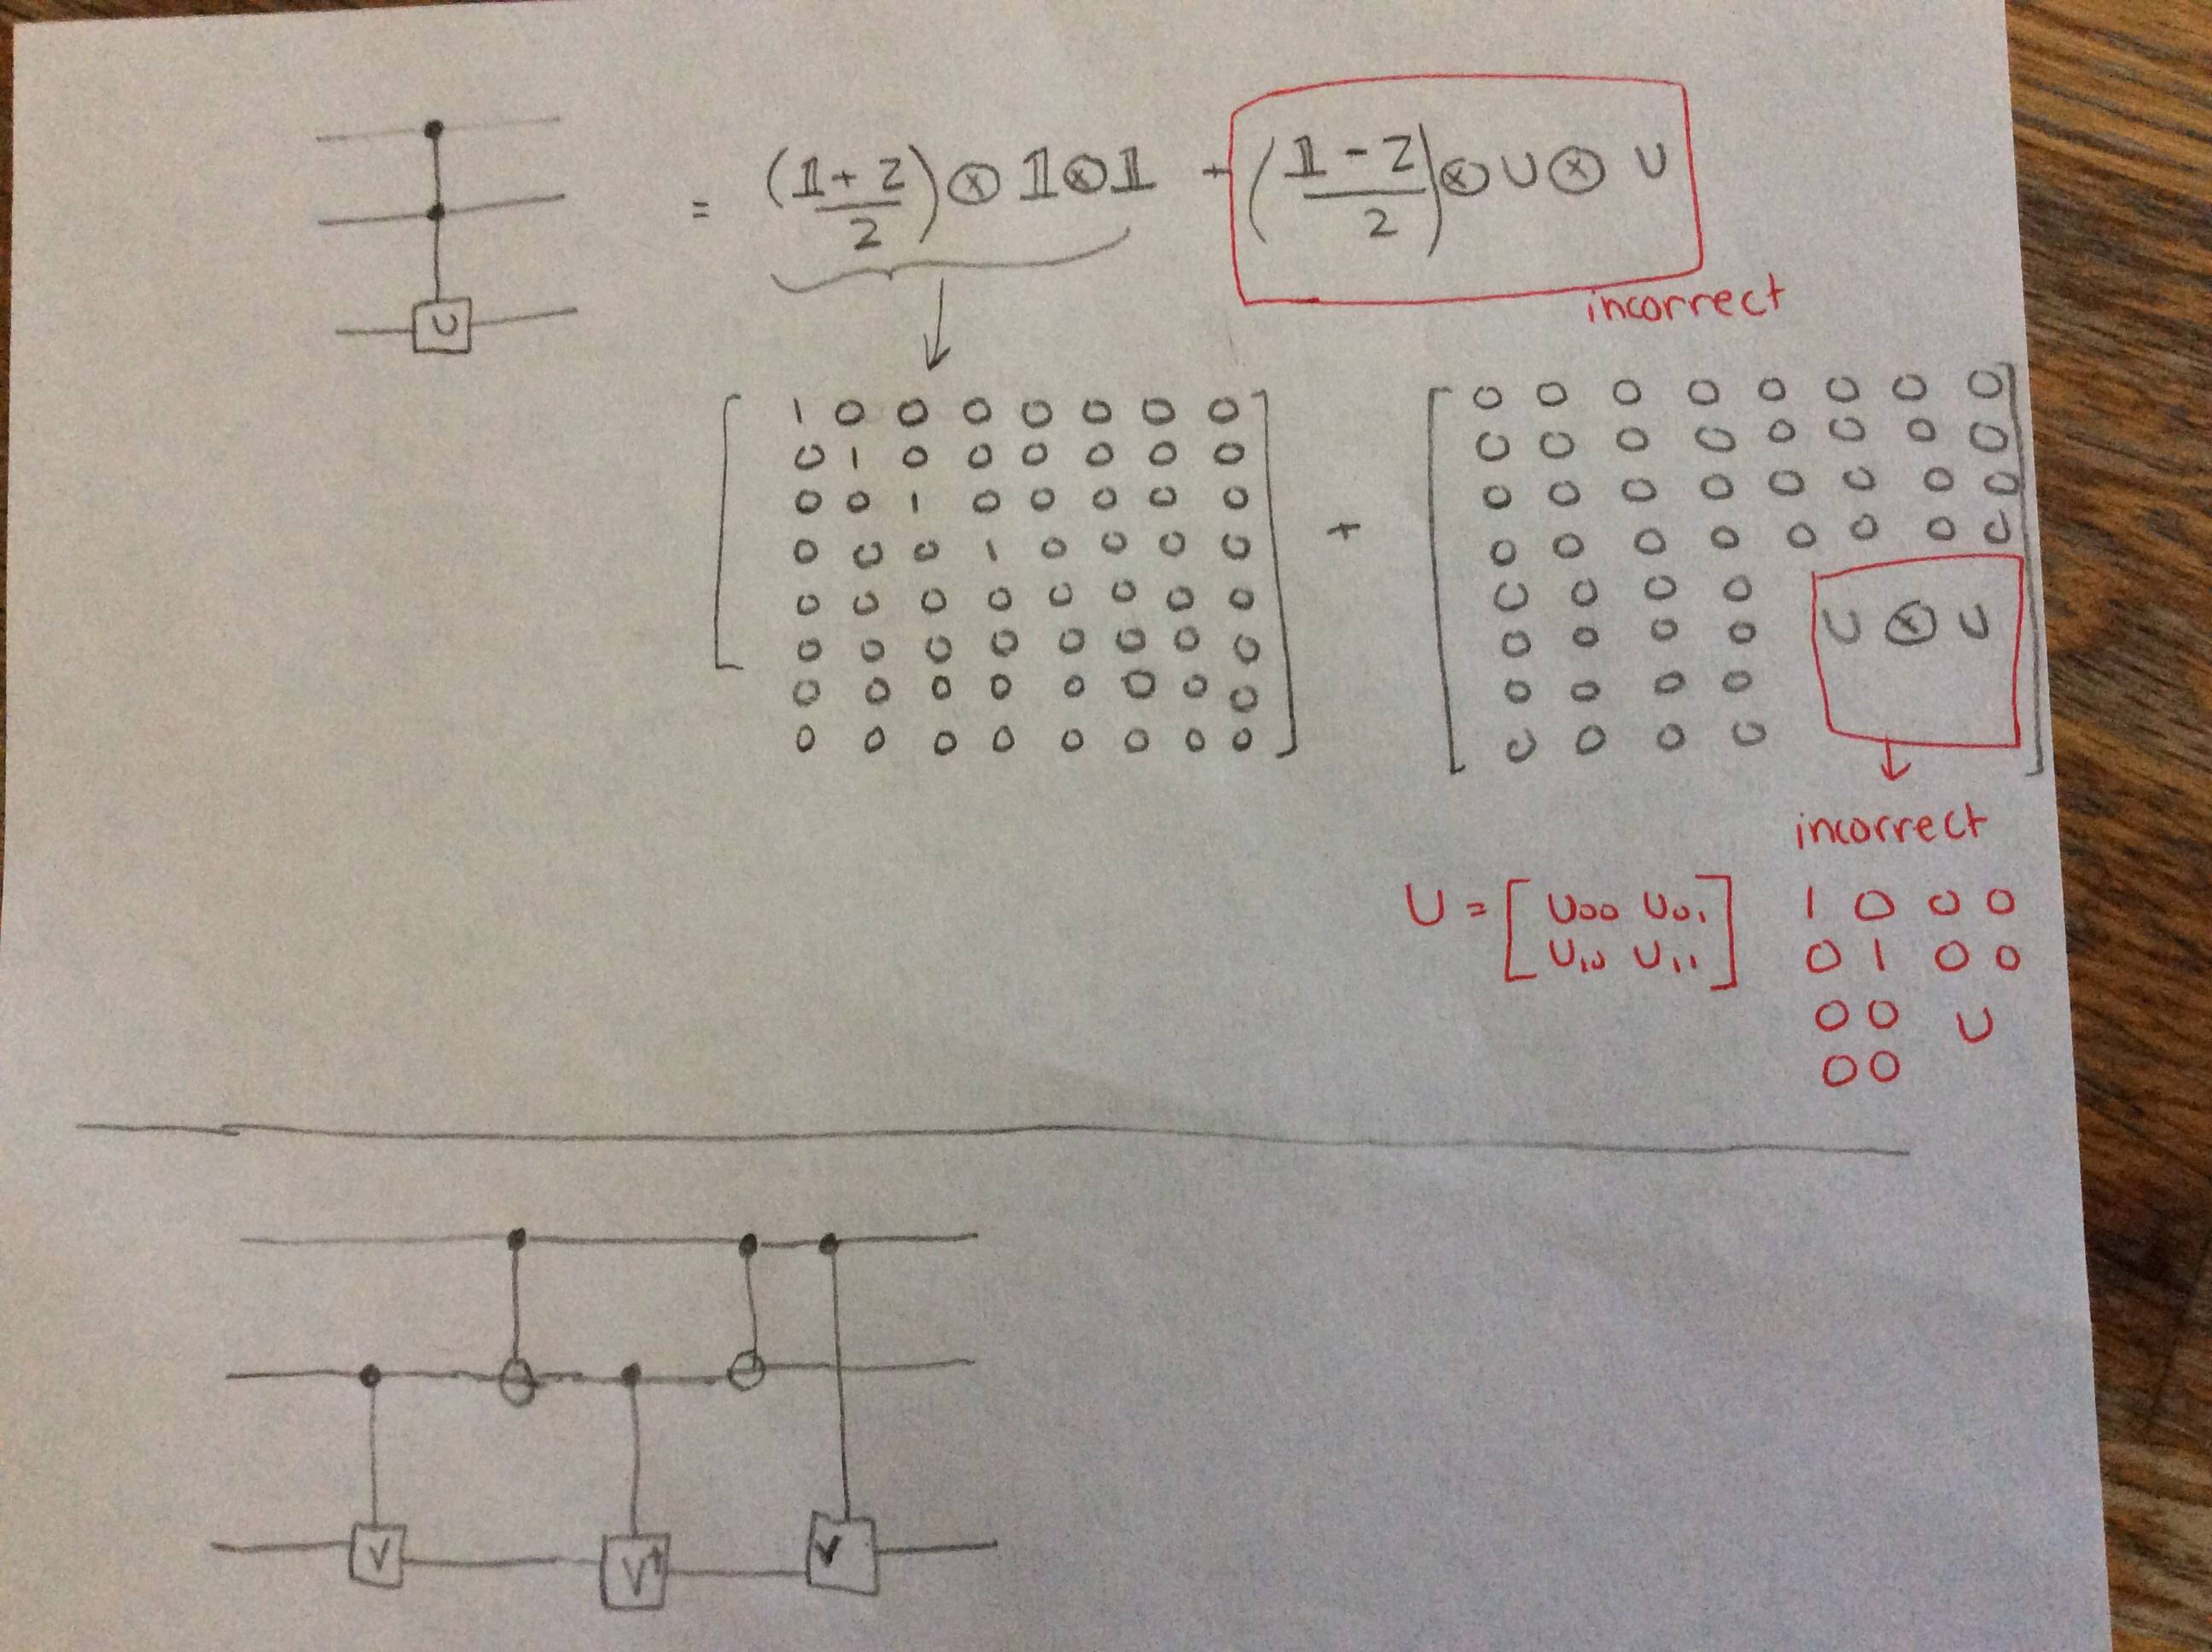 U
= (𝟙 + Z / 2) ⊗ 𝟙 ⊗ 𝟙 + (𝟙 - Z / 2) ⊗ U ⊗ U
incorrect
1 0 0 0 0 0 0 0
0 1 0 0 0 0 0 0
0 0 1 0 0 0 0 0
0 0 0 1 0 0 0 0
0 0 0 0 0 0 0 0
0 0 0 0 0 0 0 0
0 0 0 0 0 0 0 0
0 0 0 0 0 0 0 0
+
0 0 0 0 0 0 0 0
0 0 0 0 0 0 0 0
0 0 0 0 0 0 0 0
0 0 0 0 0 0 0 0
0 0 0 0 U ⊗ U
0 0 0 0
0 0 0 0
0 0 0 0
incorrect
U = [ U00 U01
U10 U11 ]
1 0 0 0
0 1 0 0
0 0 U
0 0
V V† V